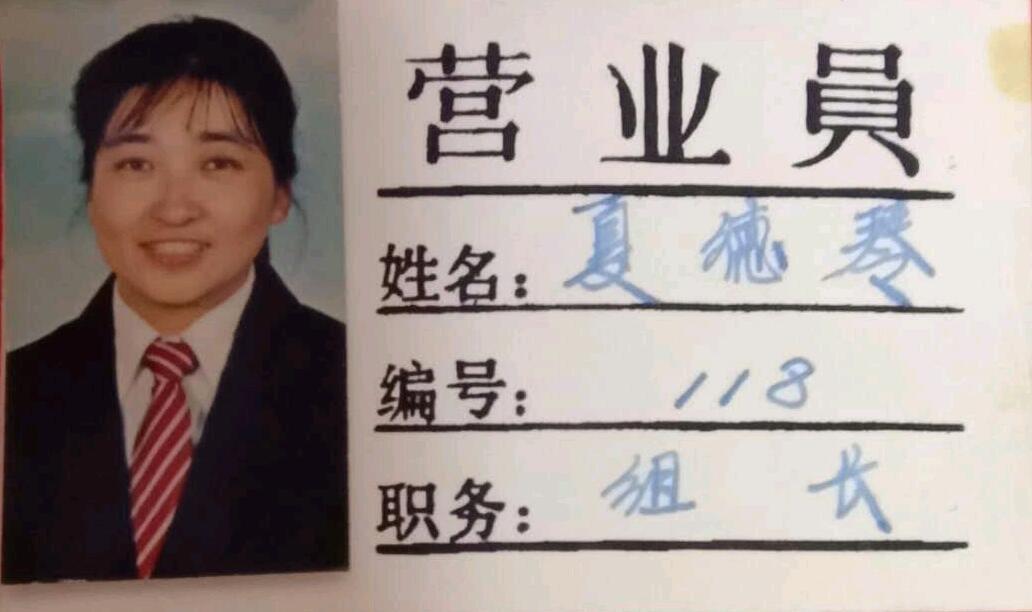 营业員
姓名：夏德琴
编号：118
职务：组长